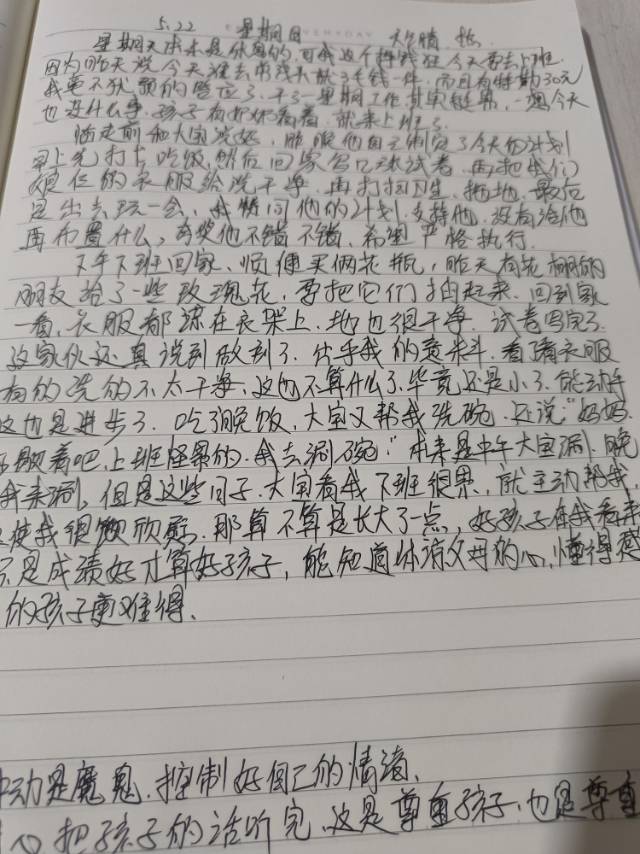 5.22 星期日 大晴 热
星期天本来是休息的,可我这个挣钱狂今天要去上班
因为昨天说今天谁去剪线头就3毛钱一件,而且有特勤30元
我毫不犹豫的答应了,干了一星期工作其实挺累,一想今天
也没什么事,孩子有奶奶看着,就来上班了
临走前和大宝说好,让他自己制定了今天的计划
早上先打卡吃饭,然后回家写口试卷,再把我们
的衣服给洗干净,再打扫卫生,拖地,最后
是出去玩一会,我赞同他的计划,支持他,没有给他
再布置什么,夸奖他不错不错,希望严格执行.
下午下班回家,顺便买俩花瓶,昨天有花棚的
朋友给了一些玫瑰花,要把它们插起来.回到家
一看,衣服都晾在衣架上.地也很干净.试卷写完了.
这家伙还真说到做到了.出乎我的意料.看着衣服
有的洗的不太干净,这也不算什么了.毕竟还是小了.能动手
这也是进步了.吃了晚饭,大宝又帮我洗碗.还说“妈妈.
歇着吧,上班怪累的.我去涮碗”本来是中午大宝涮.晚
我来涮,但是这些日子.大宝看我下班很累,就主动帮我,
使我很欣慰.那算不算是长大了一点,好孩子在我看来
不是成绩好才算好孩子,能知道体谅父母的心,懂得感
的孩子更难得.
冲动是魔鬼.控制好自己的情绪.
心把孩子的话听完.这是尊重孩子.也是尊重